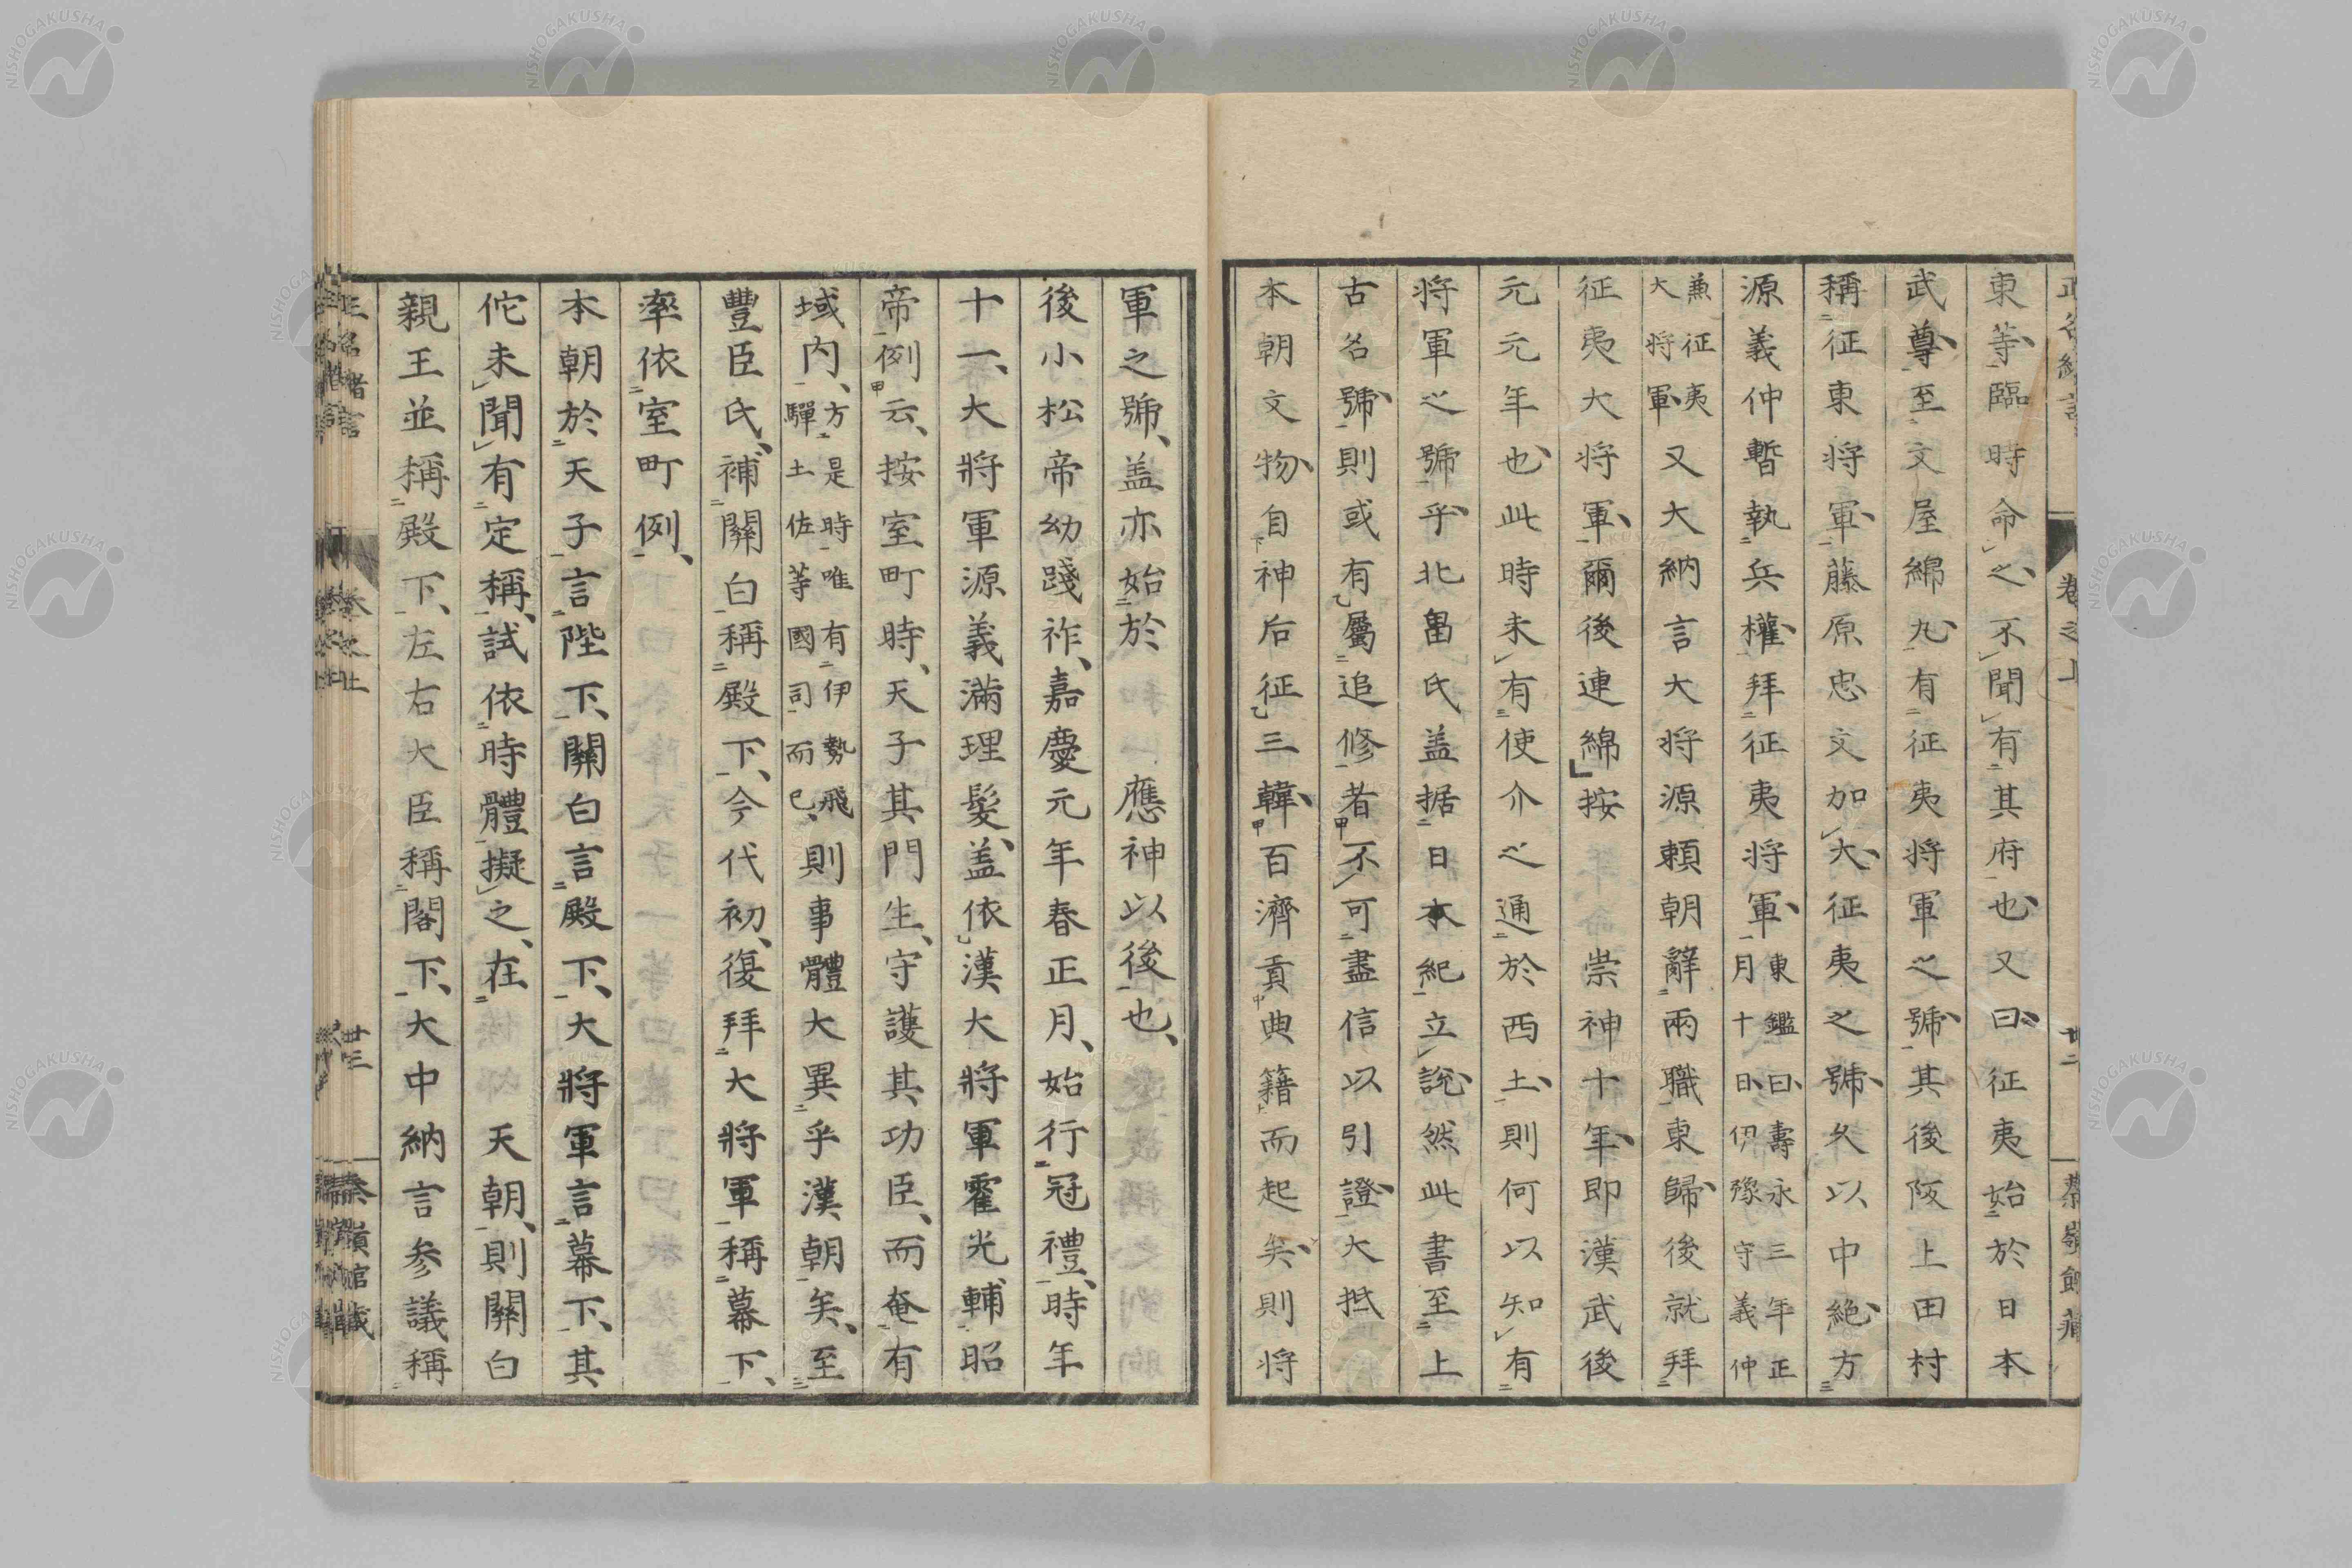 東等臨時命之不聞有其府也又曰征夷始於日本
武尊至文屋綿丸有征夷將軍之號其後阪上田村
稱征東將軍藤原忠文加大征夷之號久以中絕方
源義仲暫執兵權拜征夷將軍東鑑曰壽永三年正月十日伊豫守義仲
兼征夷大將軍又大納言大將源賴朝辭兩職東歸後就拜
征夷大將軍爾後連綿按崇神十年即漢武後
元元年也此時未有使介之通於西土則何以知有
將軍之號乎北畠氏蓋据日本紀立說然此書至上
古名號則或有屬追修者不可盡信以引證大抵
本朝文物自神后征三韓百濟貢典籍而起矣則將
軍之號蓋亦始於應神以後也
後小松帝幼踐祚嘉慶元年春正月始行冠禮時年
十一大將軍源義滿理髮蓋依漢大將軍霍光輔昭
帝例云按室町時天子其門生守護其功臣而奄有
域內方是時唯有伊勢飛驒土佐等國司而已則事體大異乎漢朝矣至
豐臣氏補關白稱殿下今代初復拜大將軍稱幕下
率依室町例
本朝於天子言陛下關白言殿下大將軍言幕下其
佗未聞有定稱試依時體擬之在天朝則關白
親王並稱殿下左右大臣稱閣下大中納言參議稱
正名緒言
卷之上
廿二
廿三
NISHOGAKUSHA